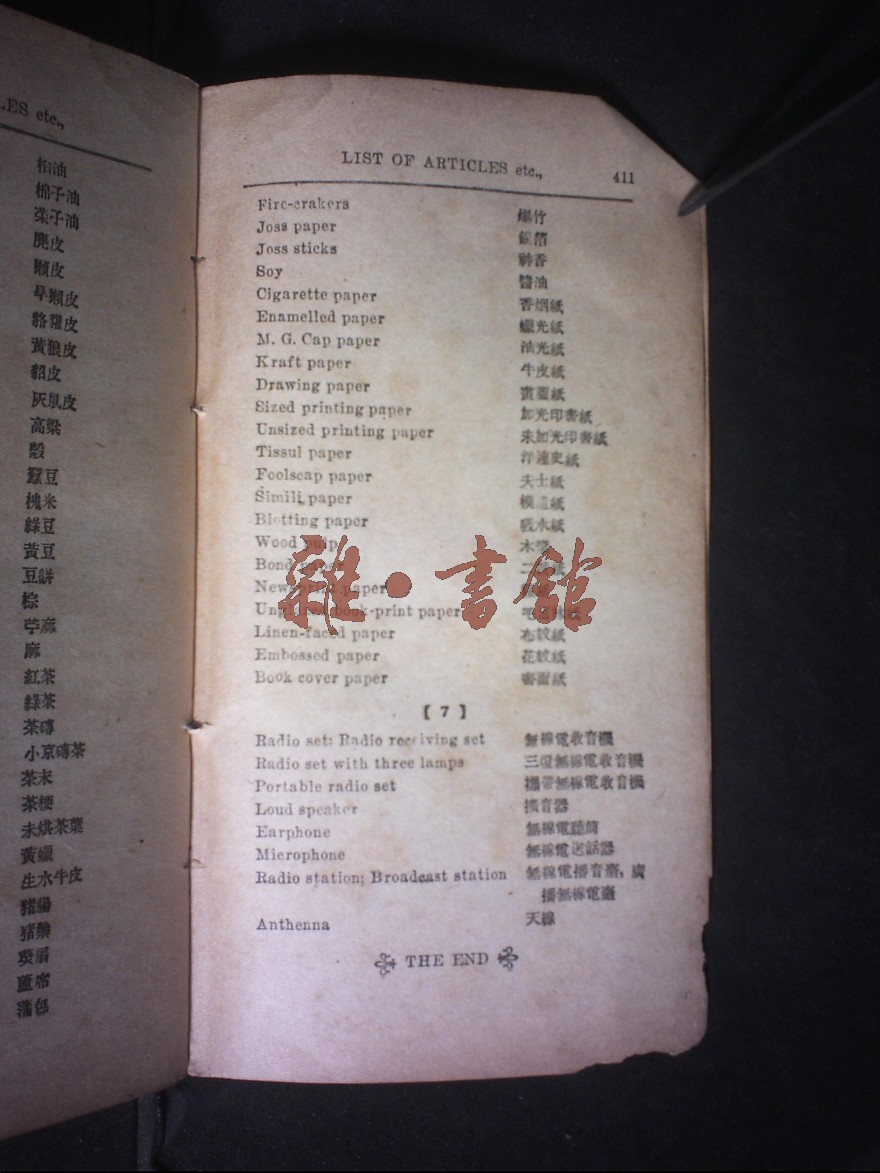 LES etc.,
柏油
棉子油
菜子油
麂皮
獺皮
旱獺皮
貉獾皮
黃狼皮
貂皮
灰鼠皮
高粱
穀
蠶豆
槐米
綠豆
黃豆
豆餅
棕
苧麻
麻
紅茶
綠茶
茶磚
小京磚茶
茶末
茶梗
未烘茶葉
黃蠟
生水牛皮
猪腸
猪鬃
蒲包
LIST OF ARTICLES etc., 411
Fire-crakers 爆竹
Joss paper 錫箔
Joss sticks 神香
Soy 醬油
Cigarette paper 香烟紙
Enamelled paper 蠟光紙
M. G. Cap paper 油光紙
Kraft paper 牛皮紙
Drawing paper 畫圖紙
Sized printing paper 加光印書紙
Unsized printing paper 未加光印書紙
Tissul paper 洋連史紙
Foolscap paper 夫士紙
Simili paper 模造紙
Blotting paper 吸水紙
Wood pulp 木
Bond paper
Newsprint paper
book-print paper
Linen-faced paper 布紋紙
Embossed paper 花紋紙
Book cover paper 書面紙
雜·書館
[ 7 ]
Radio set: Radio receiving set 無線電收音機
Radio set with three lamps 三燈無線電收音機
Portable radio set 攜帶無線電收音機
Loud speaker 擴音器
Earphone 無線電聽筒
Microphone 無線電送話器
Radio station; Broadcast station 無線電播音臺, 廣
播無線電臺
Anthenna 天線
THE END